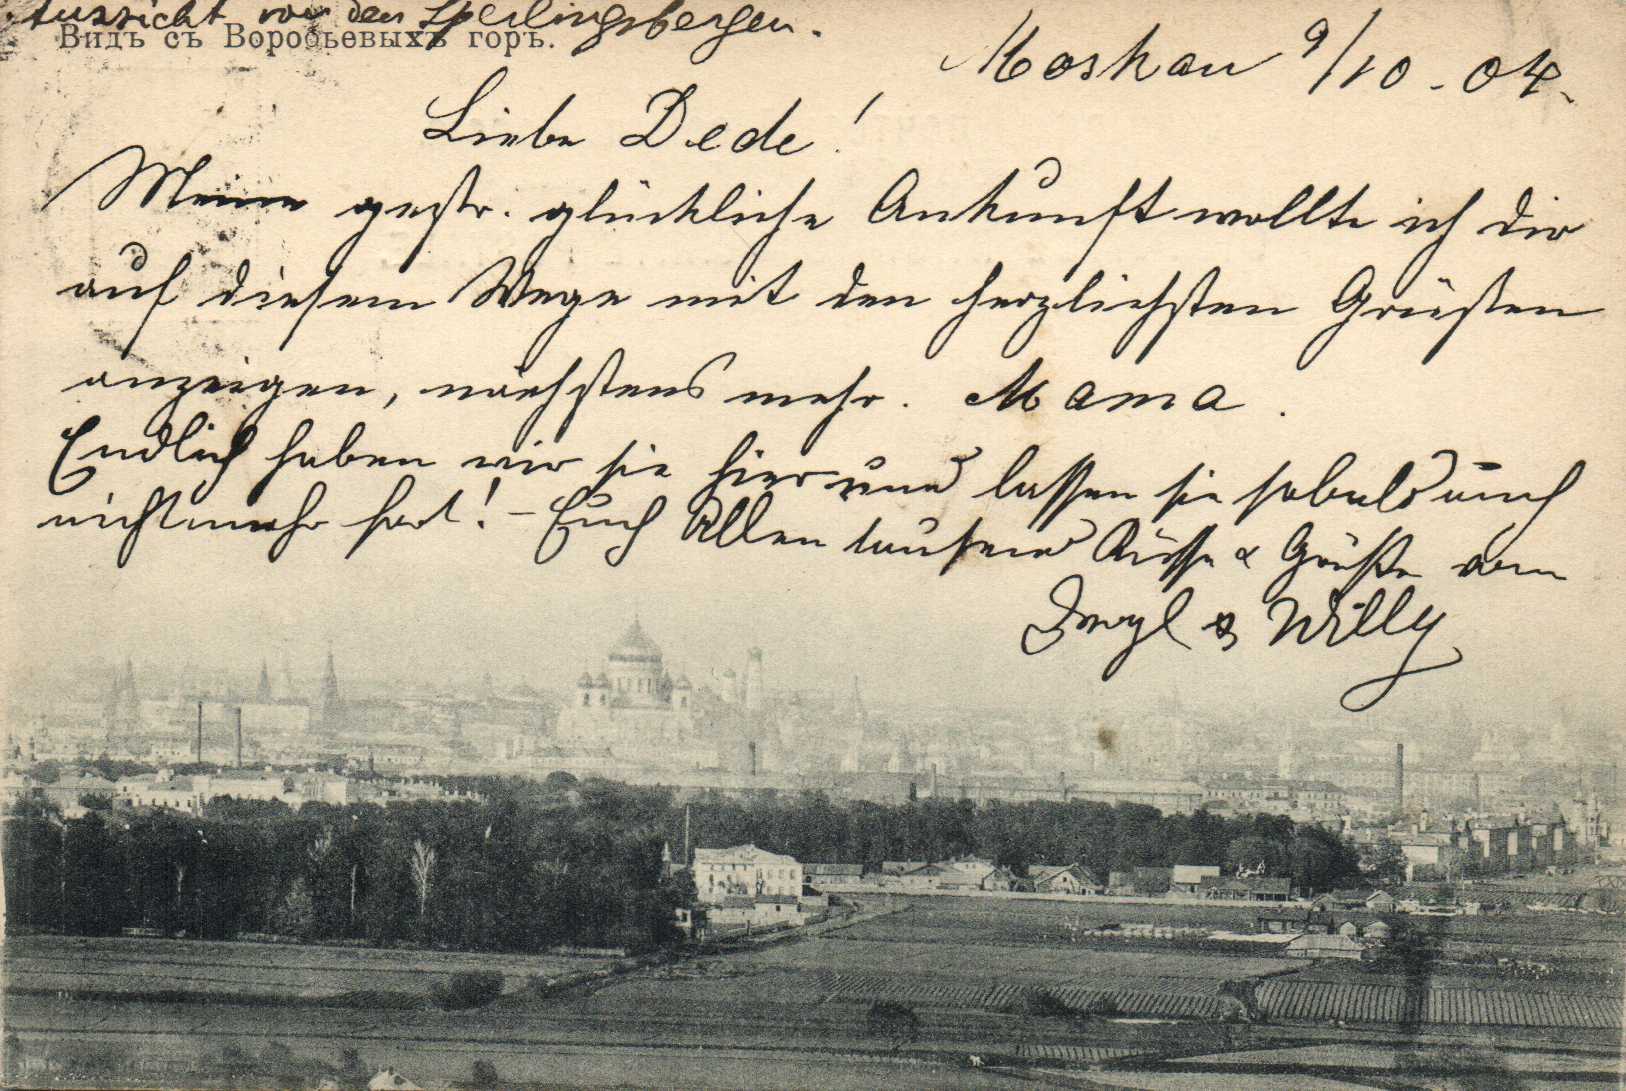 Aussicht von den Sperlingsbergen.
Видъ съ Воробьевыхъ горъ.
Moskau 9/10 - 04.
Liebe Dede!
Meine gestr. glückliche Ankunft wollte ich dir
auf diesem Wege mit den herzlichsten Grüssen
anzeigen, nächstens mehr. Mama.
Endlich haben wir sie hier und lassen sie sobald auch
nicht mehr fort! - Euch Allen tausend Küsse & Grüße von
& Willy